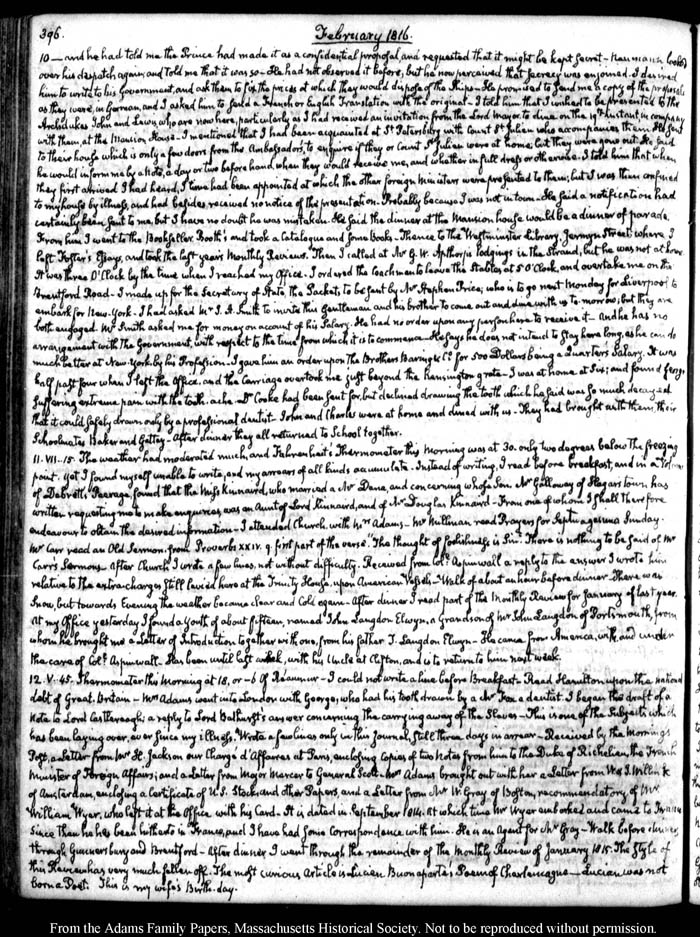 396.
February 1816.
10 — and he had told me the Prince had made it as a confidential proposal, and requested that it might be kept secret — Neumann looked
over his despatch again, and told me that it was so — He had not observed it before, but he now perceived that secrecy was enjoined. I desired
him to write to his Government, and ask them to fix the price at which they would dispose of the Ships — He promised to send me a copy of the proposals
as they were, in German, and I asked him to send a French or English Translation with the original — I told him that I wished to be presented to the
Archdukes John and Lewis, who are now here, particularly as I had received an invitation from the Lord Mayor to dine on the instant in company
with them, at the Mansion House — I mentioned that I had been acquainted at St. Petersburg with Count St. Julien who accompanies them. He sent
to their house which is only a few doors from the Ambassador's, to enquire if they or Count St. Julien were at home; but they were gone out. He said
he would inform me by a Note, a day or two before hand, when they would receive me, and whether in full dress or otherwise. I told him that when
they first arrived I had heard, a time had been appointed at which the other foreign Ministers were presented to them; but I was then confined
to my house by illness, and had besides received no notice of the presentation. Probably because I was not in town — He said a notification had
certainly been sent to me, but I have no doubt he was mistaken. He said the dinner at the Mansion house would be a dinner of parade.
From him I went to the Bookseller Booth's and took a Catalogue and some Books — Thence to the Westminster Library, Jermyn Street where I
left Foster's Essays, and took the last year's Monthly Reviews. Then I called at Mr. G. W. Apthorp's lodgings in the Strand, but he was not at home
It was three O'Clock by the time when I reached my Office. I ordered the Coachman to leave the Stables at 5 O'Clock, and overtake me on the
Brentford Road — I made up for the Secretary of State, the Packet, to be sent by Mr. Stephen Price; who is to go next Monday for Liverpool to
embark for New-York — I had asked Mr. J. A. Smith to invite this Gentleman and his brother to come out and dine with us to-morrow; but they are
both engaged. Mr. Smith asked me for money on account of his Salary. He had no order upon any person here to receive it — and he has no
arrangement with the Government, with respect to the time from which it is to commence. He says he does not intend to stay here long, as he can do
much better at New-York by his Profession. I gave him an order upon the Brothers Baring & Co. for 500 Dollars being a Quarter's Salary. It was
half past four when I left the Office, and the Carriage overtook me just beyond the Kensington gate — I was at home at Six; and found George
suffering extreme pain with the tooth-ache — Dr. Cooke had been sent for, but declined drawing the tooth which he said was so much decayed
that it could safely drawn only by a professional dentist — John and Charles were at home and dined with us — They had brought with them, their
Schoolmates Baker and Gatley — After dinner they all returned to School together.
11. VII. 15. The weather had moderated much, and Fahrenheit's Thermometer this Morning was at 30. only two degrees below the freezing
point. Yet I found myself unable to write, and my arrears of all kinds accumulate. Instead of writing, I read before breakfast, and in a Volume
of Debrett's Peerage, found that the Miss Kinnaird, who married a Mr. Dana, and concerning whose Son Mr. Galloway of Hagar's town has
written requesting me to make enquiries, was an Aunt of Lord Kinnaird, and of Mr. Douglas Kinnaird — From one of whom I shall therefore
endeavour to obtain the desired information — I attended Church, with Mrs. Adams — Mr. Millman read Prayers for Septuagesima Sunday.
Mr. Carr read an Old Sermon, from Proverbs XXIV. 9. first part of the verse. The thought of foolishness is Sin. There is nothing to be said of Mr.
Carr's Sermons. After Church, I wrote a few lines, not without difficulty. Received from Coll. Aspinwall a reply to the answer I wrote him
relative to the extra-charges still levied here at the Trinity House, upon American Vessels — Walk of about an hour before dinner. There was
Snow, but towards Evening the weather became clear and Cold again — After dinner I read part of the Monthly Review for January of last year.
At my Office yesterday I found a youth of about fifteen, named John Langdon Elwyn, a Grandson of Mr. John Langdon of Portsmouth, from
whom he brought me a Letter of Introduction together with one, from his father T. Langdon Elwyn — He came from America, with, and under
the care of Coll. Aspinwall. Has been until last week, with his Uncle at Clifton, and is to return to him next week.
12. V. 45. Thermometer this Morning at 18, or -6 of Réaumur — I could not write a line before Breakfast — Read Hamilton upon the national
debt of Great-Britain — Mrs. Adams went into London with George; who had his tooth drawn by a Mr. Fox a dentist. I began the draft of a
Note to Lord Castlereagh; a reply to Lord Bathurst's answer concerning the carrying away of the Slaves — This is one of the Subjects which
has been laying over, ever since my illness. Wrote a few lines only in this Journal, still three days in arrear — Received by the Morning's
Post, a Letter from Mr. H. Jackson our Chargé d'Affaires at Paris, enclosing Copies of two Notes from him to the Duke of Richelieu, the French
Minister of Foreign Affairs; and a Letter from Major Mercer to General Scott — Mrs. Adams brought out with her a Letter from W. & J. Willink
of Amsterdam, enclosing a Certificate of U.S. Stock, and other Papers, and a Letter from Mr. W. Gray of Boston, recommendatory of Mr.
William Wyer, who left it at the Office with his Card — It is dated in September 1814. At which time Mr. Wyer embarked and came to France
Since then he has been hitherto in France, and I have had some correspondence with him. He is an Agent for Mr. Gray — Walk before dinner,
through Gunnersbury and Brentford — After dinner, I went through the remainder of the Monthly Review of January 1815. The Style of
this Review has very much fallen off. The most curious Article is Lucien Buonaparte's Poem of Charlemagne — Lucian was not
born a Poet. This is my wife's Birth-day.
From the Adams Family Papers, Massachusetts Historical Society. Not to be reproduced without permission.